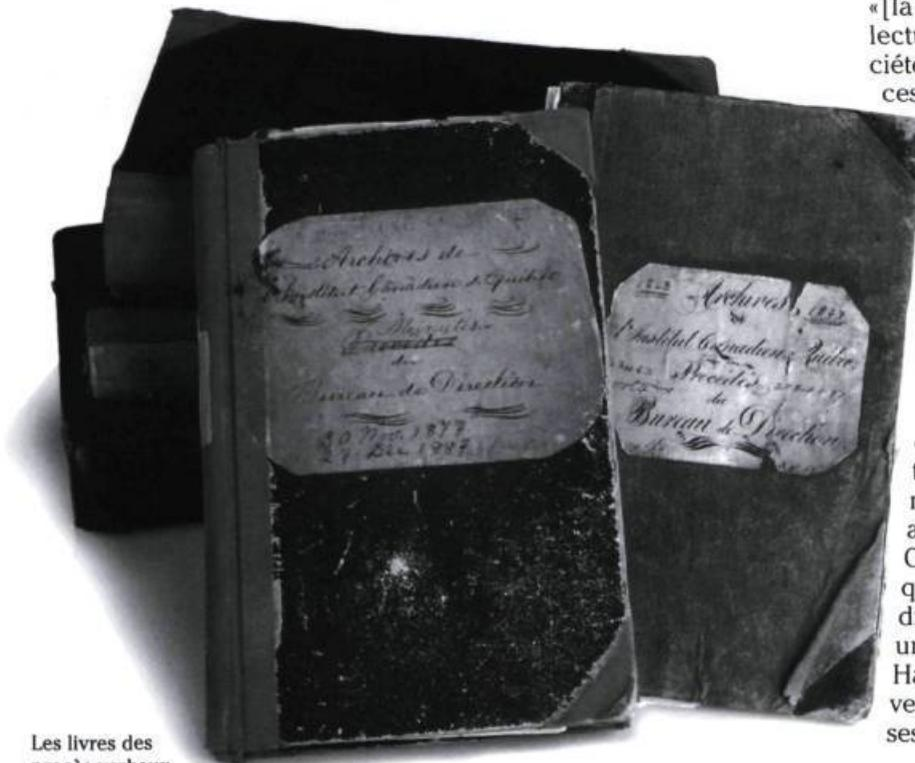 «[la
lectu
ciété
ces
Archives de
l'Institut Canadien de Québec
Minutes
Procédés
du
Bureau de Direction
30 Nov. 1877
27 Dec 1887
Archives
de
l'Institut Canadien Québec
Procédés
du
Bureau de Direction
t
r
a
C
q
d
un
Ha
ve
ses
Les livres des